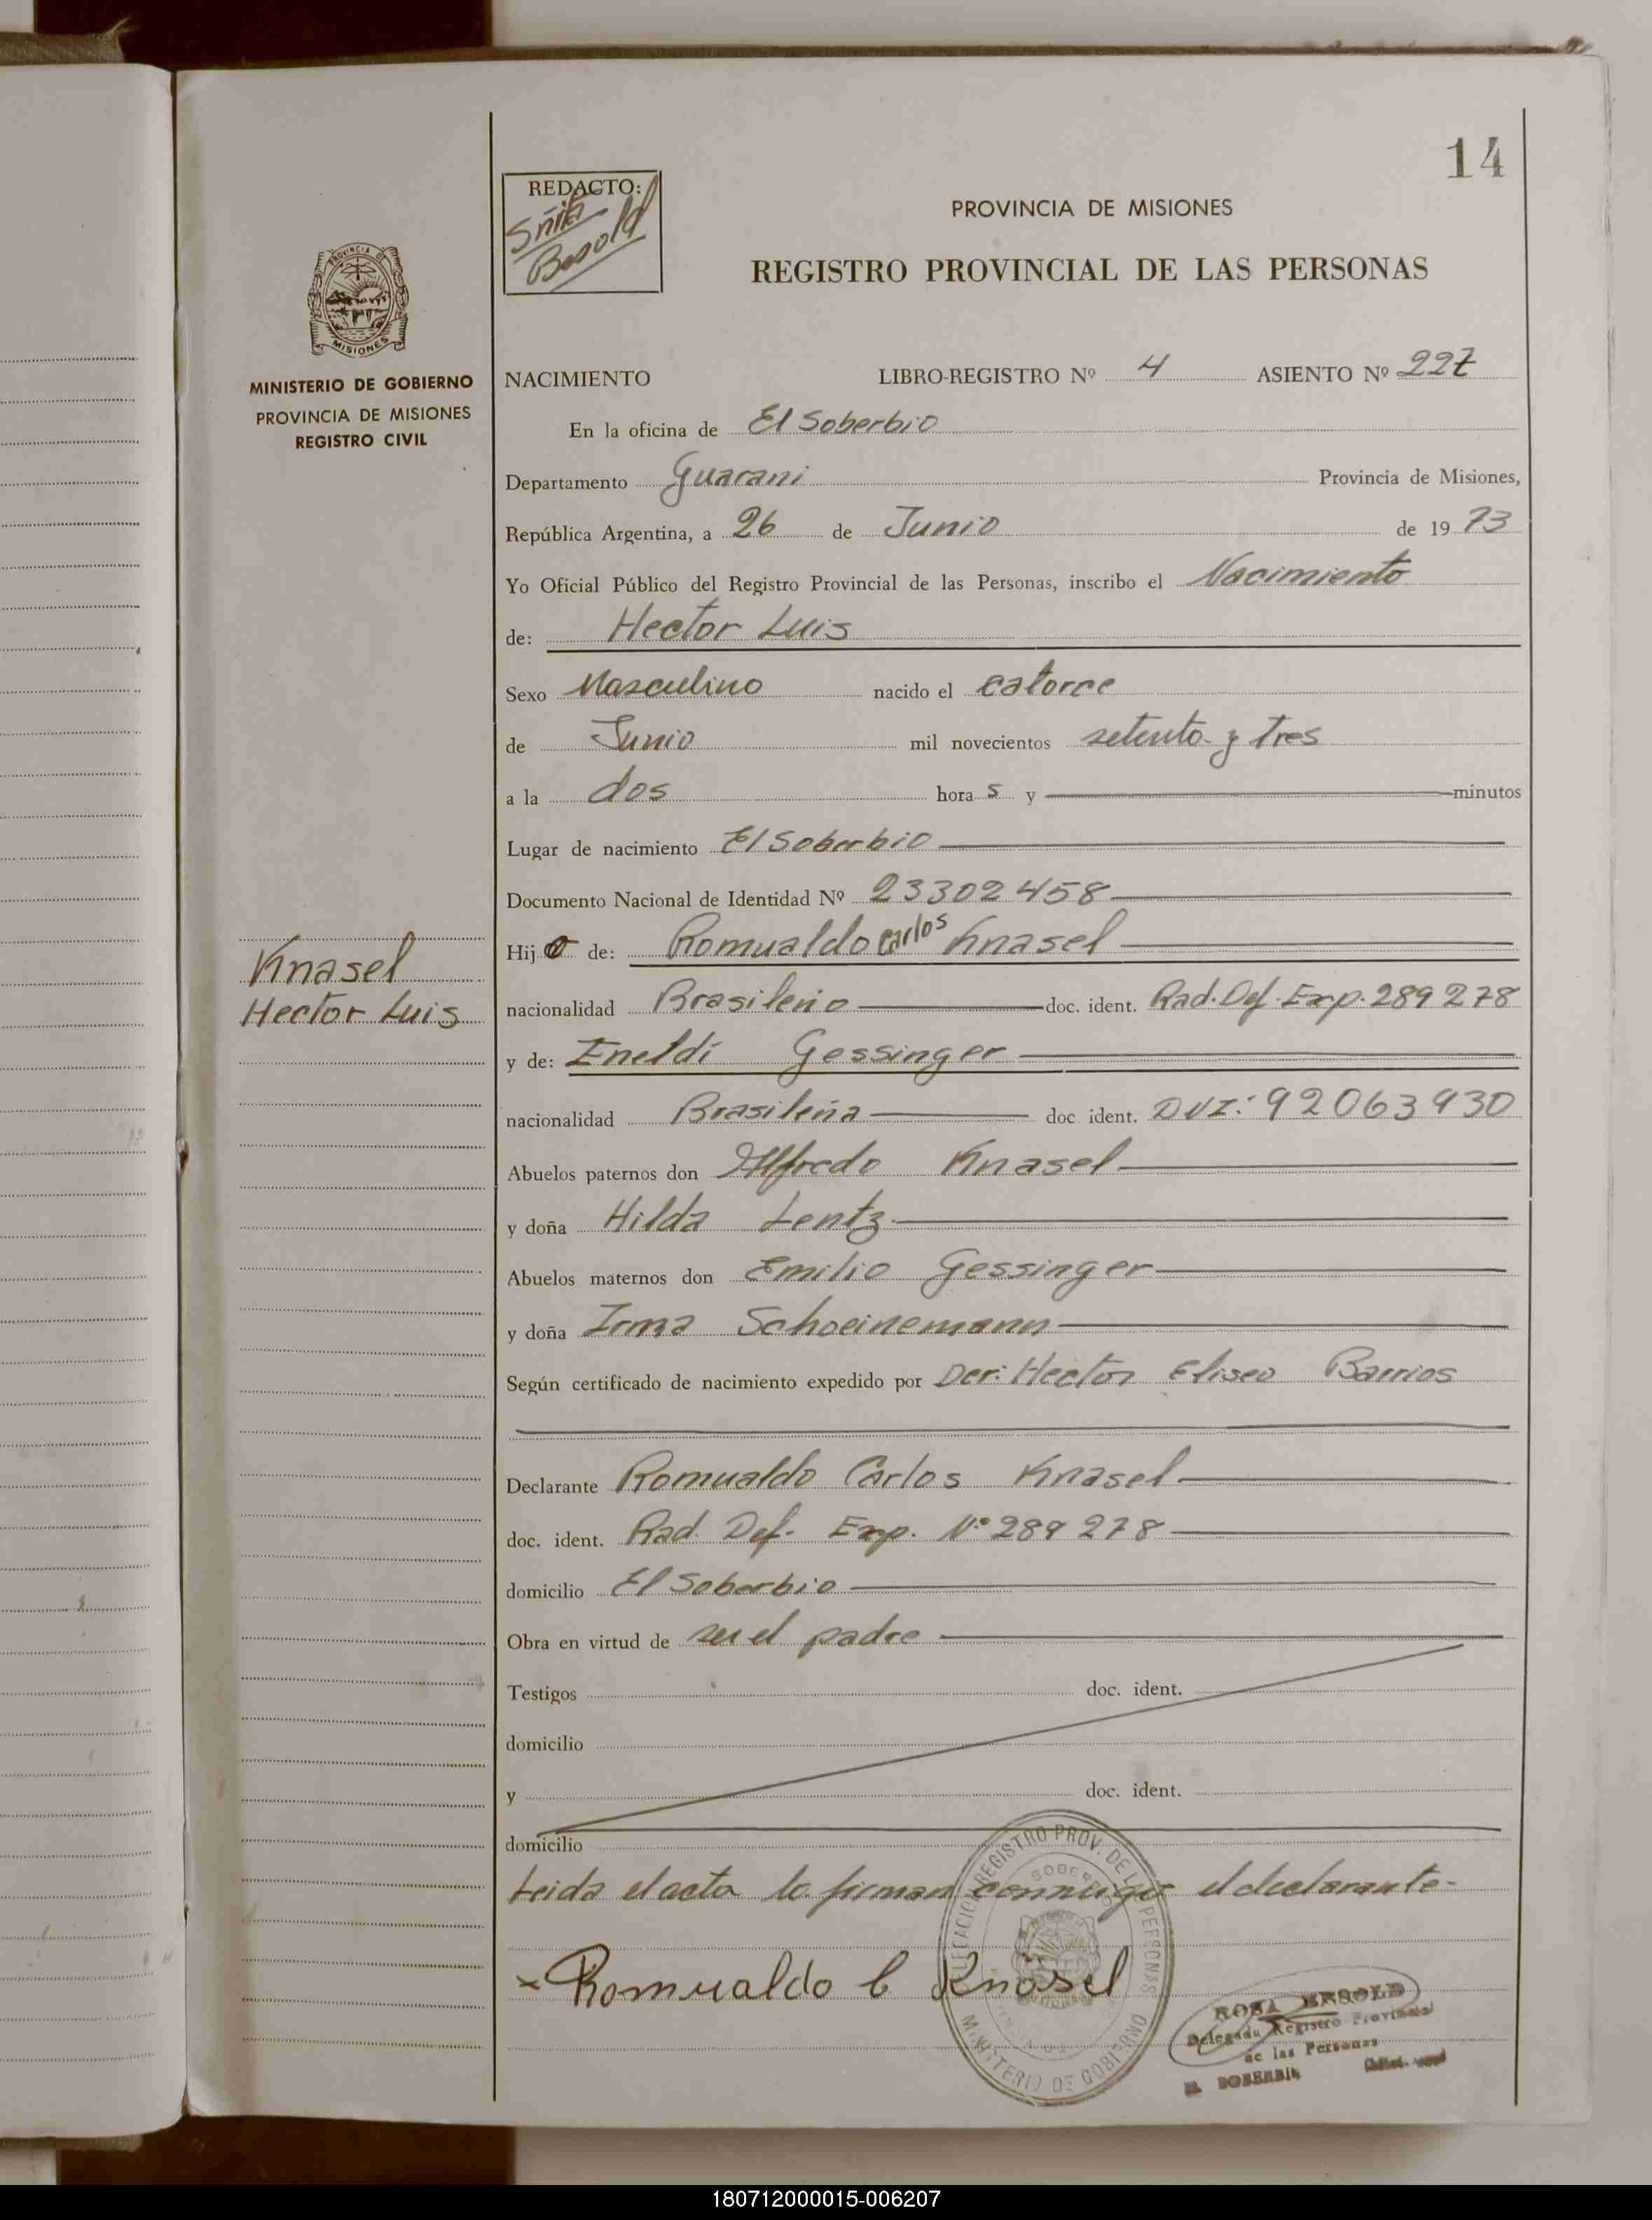 14
REDACTO:
Sñita
Besold
PROVINCIA DE MISIONES
REGISTRO PROVINCIAL DE LAS PERSONAS
PROVINCIA DE
MISIONES
MINISTERIO DE GOBIERNO
PROVINCIA DE MISIONES
REGISTRO CIVIL
NACIMIENTO LIBRO-REGISTRO Nº 4 ASIENTO Nº 227
En la oficina de El Soberbio
Departamento Guarani Provincia de Misiones,
República Argentina, a 26 de Junio de 19 73
Yo Oficial Público del Registro Provincial de las Personas, inscribo el Nacimiento
de: Hector Luis
Sexo Masculino nacido el catorce
de Junio mil novecientos setenta y tres
a la dos hora s y minutos
Lugar de nacimiento El Soberbio
Documento Nacional de Identidad Nº 23302458
Hij o de: Romualdo Carlos Knasel
Knasel
Hector Luis
nacionalidad Brasileño doc. ident. Rad. Def. Exp. 289278
y de: Eneldi Gessinger
nacionalidad Brasileña doc ident. DNI: 92063930
Abuelos paternos don Alfredo Knasel
y doña Hilda Lentz
Abuelos maternos don Emilio Gessinger
y doña Irma Schoeinemann
Según certificado de nacimiento expedido por Der: Hector Eliseo Barrios
Declarante Romualdo Carlos Knasel
doc. ident. Rad. Def. Exp. Nº 289278
domicilio El Soberbio
Obra en virtud de ser el padre
Testigos doc. ident.
domicilio
y doc. ident.
domicilio
Leida el acta la firman conmigo el declarante-
REGISTRO PROV. DE L PERSONAS
MINISTERIO DE GOBIERNO
Romualdo C Knasel
ROSA BESOLD
Delegada Registro Provincial
de las Personas
EL SOBERBIO
180712000015-006207